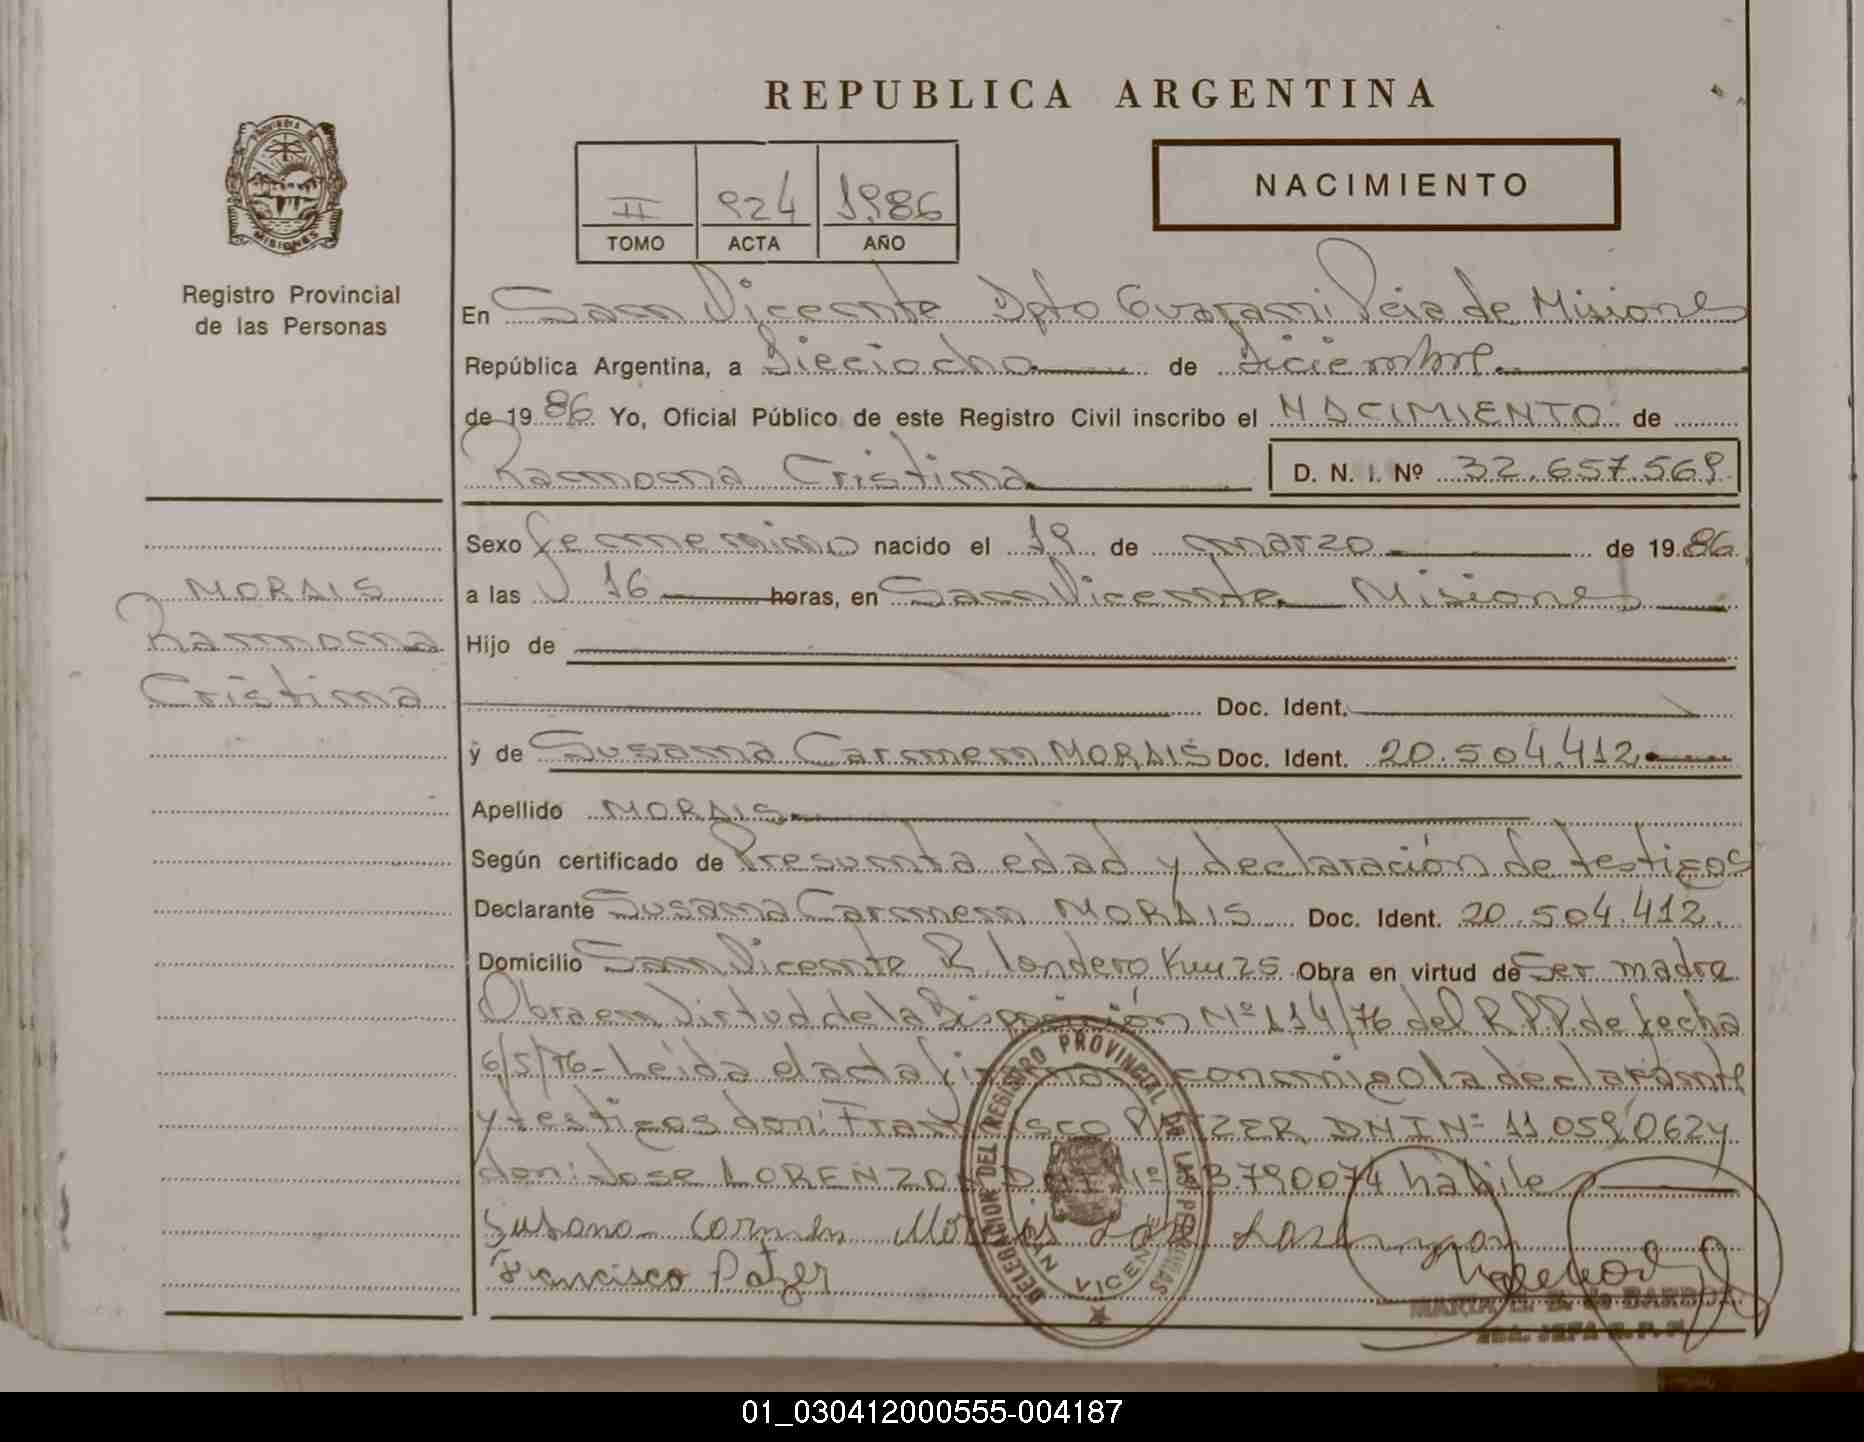 REPUBLICA ARGENTINA
PROVINCIA DE
MISIONES
Registro Provincial
de las Personas
II 924 1986
TOMO ACTA AÑO
NACIMIENTO
En San Vicente Dpto Guarani Pcia de Misiones
República Argentina, a Dieciocho de Diciembre
de 1986 Yo, Oficial Público de este Registro Civil inscribo el NACIMIENTO de
Ramona Cristina D. N. I. Nº 32.657.569
Sexo femenino nacido el 19 de marzo de 1986
a las 16 horas, en San Vicente Misiones
Hijo de
Doc. Ident.
y de Susana Carmen MORAIS Doc. Ident. 20.504.412
Apellido MORAIS
Según certificado de Presunta edad y declaración de testigos
Declarante Susana Carmen MORAIS Doc. Ident. 20.504.412.
Domicilio San Vicente R. londero Km 25 Obra en virtud de Ser madre
Obra en Virtud de la Disposición Nº 114/76 del R.P.P. de fecha
6/5/76 - Leida el acta firman conmigo la declarante
y testigos don: Francisco PATZER DNI Nº 11.059.062 y
don: Jose LORENZON DNI Nº 790074 hàbile
Susana Carmen Morais Jose Lorenzon
Francisco Patzer
MORAIS
Ramona
Cristina
DELEGACION DEL REGISTRO PROVINCIAL DE LAS PERSONAS
SAN VICENTE
MARIA de BARBOZA
JEFA R. P. P.
01_030412000555-004187